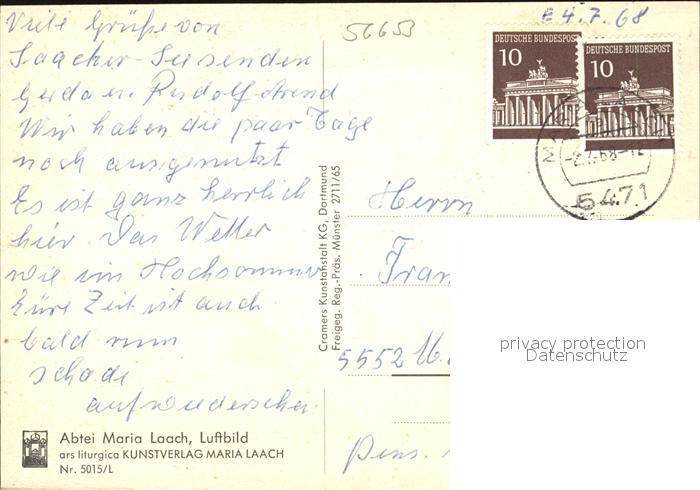 Viele Grüße von
Laacher-See senden
Gerda u. Rudolf Arend
Wir haben die paar Tage
noch ausgenutzt
Es ist ganz herrlich
hier. Das Wetter
wie im Hochsommer
Eure Zeit ist auch
bald rum
schade
aufwiedersehen.
Abtei Maria Laach, Luftbild
ars liturgica KUNSTVERLAG MARIA LAACH
Nr. 5015/L
Cramers Kunstanstalt KG, Dortmund
Freigeg. Reg.-Präs. Münster 2711/65
56653
E 4.7.68
DEUTSCHE BUNDESPOST
10
DEUTSCHE BUNDESPOST
10
-2.7.68-12
5471
Herrn
Fran
5552
Pens.
privacy protection
Datenschutz